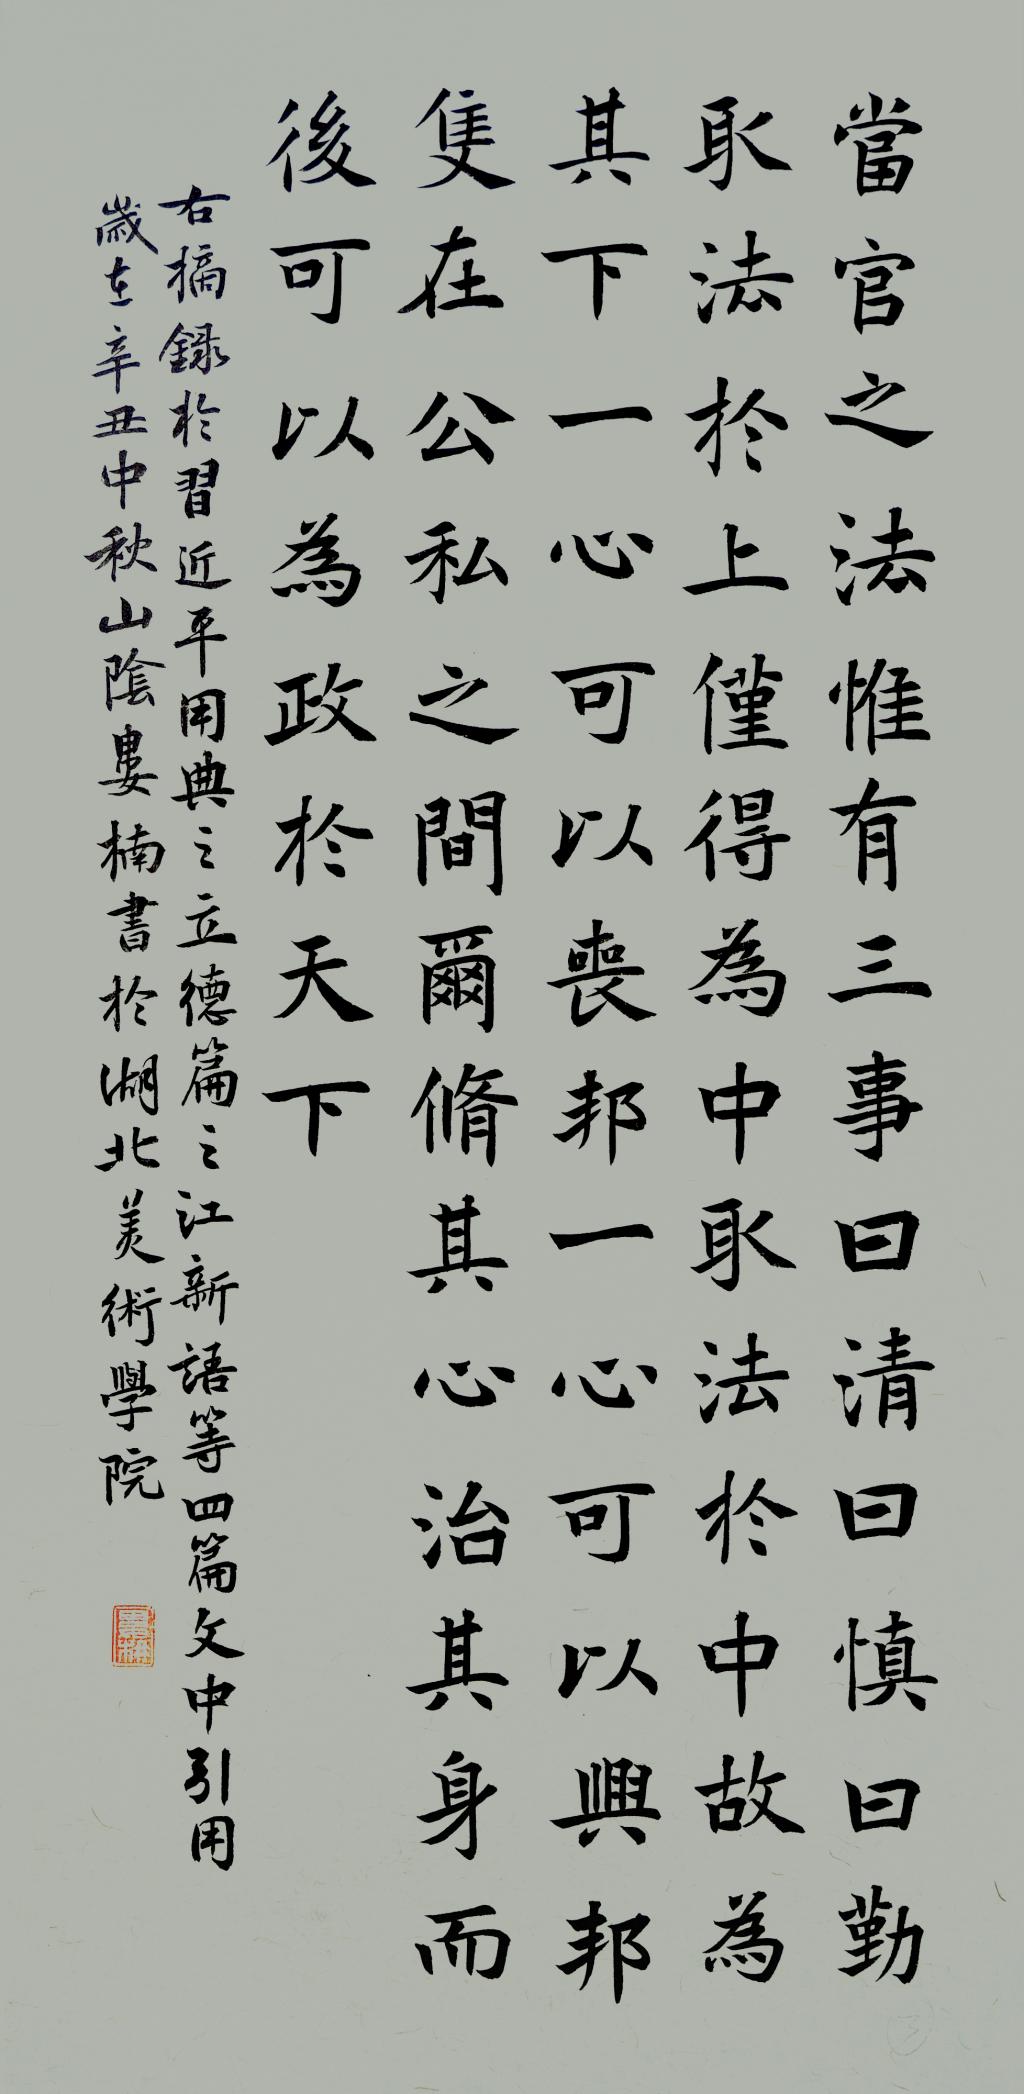 當官之法惟有三事曰清曰慎曰勤
取法於上僅得為中取法於中故為
其下一心可以喪邦一心可以興邦
隻在公私之間爾脩其心治其身而
後可以為政於天下
右摘録於習近平用典之立德篇之江新語等四篇文中引用
歲在辛丑中秋山陰婁楠書於湖北美術學院
婁楠